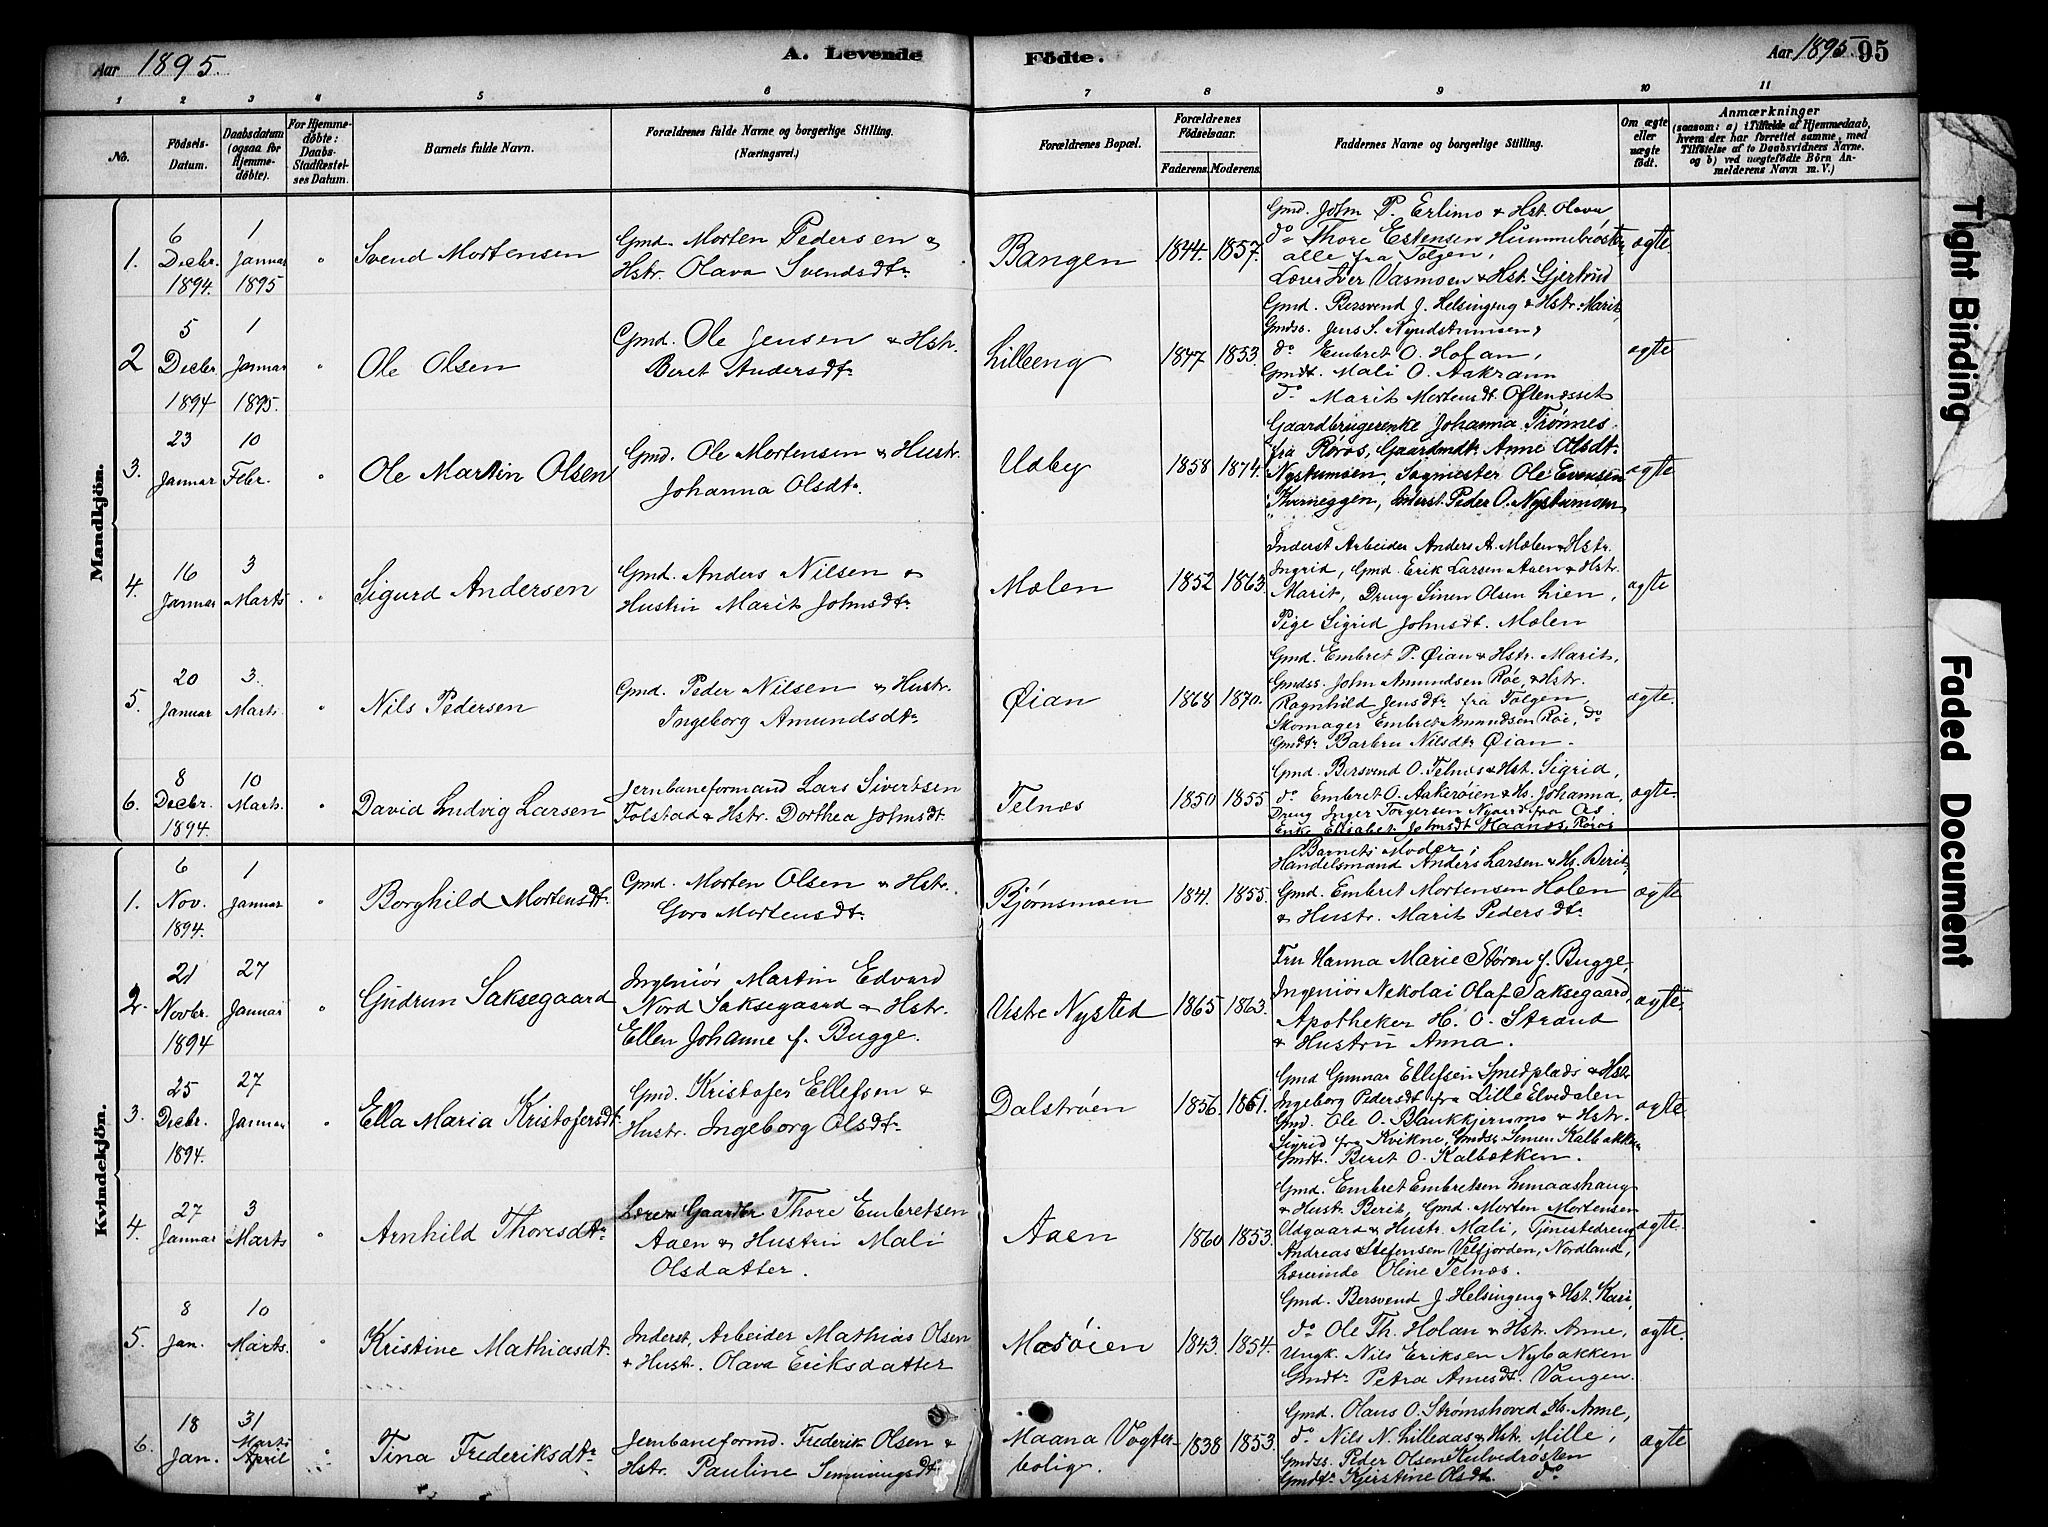 Aar 1895.
A. Levende Födte.
Aar 1895 95
1 2 3 4 5 6 7 8 9 10 11
No.
Födsels-Datum.
Daabsdatum (ogsaa for Hjemme-døbte).
For Hjemme-døbte: Daabs-Stadfæstel-ses Datum.
Barnets fulde Navn.
Forældrenes fulde Navne og borgerlige Stilling. (Næringsvei.)
Forældrenes Bopæl.
Forældrenes Födselsaar.
Faderens. Moderens.
Faddernes Navne og borgerlige Stilling.
Om ægte eller uægte födt.
Anmærkninger
(saasom: a) i Tilfælde af Hjemmedaab, hvem der har forrettet samme, med Tilföielse af to Daabsvidners Navne. og b) ved uægtefödte Börn An-melderens Navn m. V.)
Mandkjön.
1. 6 Decbr. 1894. 1 Januar 1895 " Svend Mortensen
Gmd. Morten Pedersen &
Hstr. Olava Svendsdtr.
Bangen 1844. 1857.
Gmd. John P. Erlimo & Hst. Olava
do Thore Estensen Hummelrøsten
alle fra Tolgen,
Lærer Iver Vasmoen & Hst. Gjertrud
ægte.
2 5 Decbr. 1894 1 Januar 1895. " Ole Olsen
Gmd. Ole Jensen & Hstr.
Beret Andersdtr.
Lilleeng 1847 1853.
Gmd. Bersvend J. Helsingeng & Hstr. Marit,
Gmdss. Jens S. Nyudstumoen,
do Embret O. Hofan,
Gmdt. Mali O. Aakrann
do Marit Mortensdt Oftenæsset
ægte
3. 23 Januar 10 Febr. " Ole Martin Olsen
Gmd. Ole Mortensen & Hustr.
Johanna Olsdtr.
Udby 1858 1874.
Gaardbrugerenke Johanna Trønnes
fra Røros, Gaardmdtr Anne Olsdtr.
Nystumoen, Sagmester Ole Evensen
Kverneggen, Inderst Peder O. Nystumoen
ægte
4. 16 Januar 3 Marts " Sigurd Andersen
Gmd. Anders Nilsen &
Hustru Marit Johnsdtr.
Moien 1852 1863.
Inderst Arbeider Anders A. Moen & Hstr.
Ingrid, Gmd. Erik Larsen Aaen & Hstr.
Marit, Dreng Simen Olsen Lien,
Pige Sigrid Johnsdt. Mælen
ægte
5. 20 Januar 3. Marts. " Nils Pedersen
Gmd. Peder Nilsen & Hustr.
Ingeborg Amundsdtr.
Øian 1868 1870.
Gmd. Embret P. Øian & Hstr. Marit,
Gmdss. John Amundsen Røe, & Hstr.
Ragnhild Jensdtr. fra Tolgen,
Skomager Embret Amundsen Røe, do
Gmdtr. Barbru Nilsdtr Øian.
ægte.
6. 8 Decbr. 1894. 10 Marts. " David Ludvig Larsen
Jernbaneformand Lars Sivertsen
Tolstad & Hstr. Dorthea Johnsdt.
Telnæs 1850 1855
Gmd. Bersvend O. Telnes & Hst. Sigrid,
do Embret O. Aakerøien & Hs. Johanna,
Dreng Inger Torgersen Nygaard fra Aas
Enke Elisabet Johnsdt Haanæs, Røros
ægte.
Kvindekjön.
1. 6 Nov. 1894. 1 Januar " Borghild Mortensdtr.
Gmd. Morten Olsen & Hstr.
Goro Mortensdtr.
Bjørnsmoen 1841. 1855.
Barnets Moder,
Handelsmand Anders Larsen & Hs. Berit,
Gmd. Embret Mortensen Holen
& Hustr. Marit Pedersdtr.
ægte
2. 21 Novbr. 1894 27 Januar " Gudrun Saksegaard
Ingeniør Martin Edvard
Nord Saksegaard & Hstr.
Ellen Johanne f. Bugge.
Vestre Nysted 1865 1863.
Fru Hanna Marie Støren f. Bugge,
Ingeniør Nekolai Olaf Saksegaard,
Apotheker H. O. Strand
& Hustru Anna.
ægte.
3. 25 Decbr. 1894. 27 Januar " Ella Maria Kristofersdt.
Gmd. Kristofer Ellefsen &
Hustr. Ingeborg Olsdtr.
Dalstrøen 1856 1861.
Gmd Gunnar Ellefsen Smedplads & Hstr
Ingeborg Pedersdt fra Lille Elvedalen
Gmd. Ole O. Blankkjernmo & Hstr.
Sigrid fra Kvikne, Gmdss Semen Kalbækken
Gmdt. Beret O. Kalbækken.
ægte.
4. 27 Januar 3 Marts " Arnhild Thoresdtr.
Lærer Gaardbr Thore Embretsen
Aaen & Hustru Mali
Olsdatter.
Aaen 1860 1853.
Gmd. Embret Embretsen Lunaashaug
& Hustr Berit, Gmd. Morten Mortensen
Udgaard & Hustr. Mali, Tjenestedreng
Andreas Stefensen Velfjorden, Nordland,
Lærerinde Oline Telnæs.
ægte.
5. 8 Jan. 10 Marts. " Kristine Mathiasdt.
Inderst, Arbeider Mathias Olsen
& Hustr. Olava Eriksdatter
Morøien 1843. 1854.
Gmd. Bersvend J Helsingeng & Hst. Kari,
do Ole Th. Holan & Hstr. Anne,
Ungk. Nils Eriksen Nybakken
Gmdtr. Petra Arnesdt. Vangen.
ægte.
6. 18 Jan. 31 Marts April " Tina Frederiksdtr.
Jernbaneformd. Frederik Olsen &
Hstr. Pauline Semmingsdt.
Maana Vogter-
bolig. 1838 1853.
Gmd. Olaus O. Strømshoved & Hs. Anne,
do Nils N. Lilleaas & Hst. Mille,
Gmdss. Peder Olsen Hulvedrøsten
Gmdtr. Kjerstine Olsdt. do
ægte
Tight Binding
Faded Document